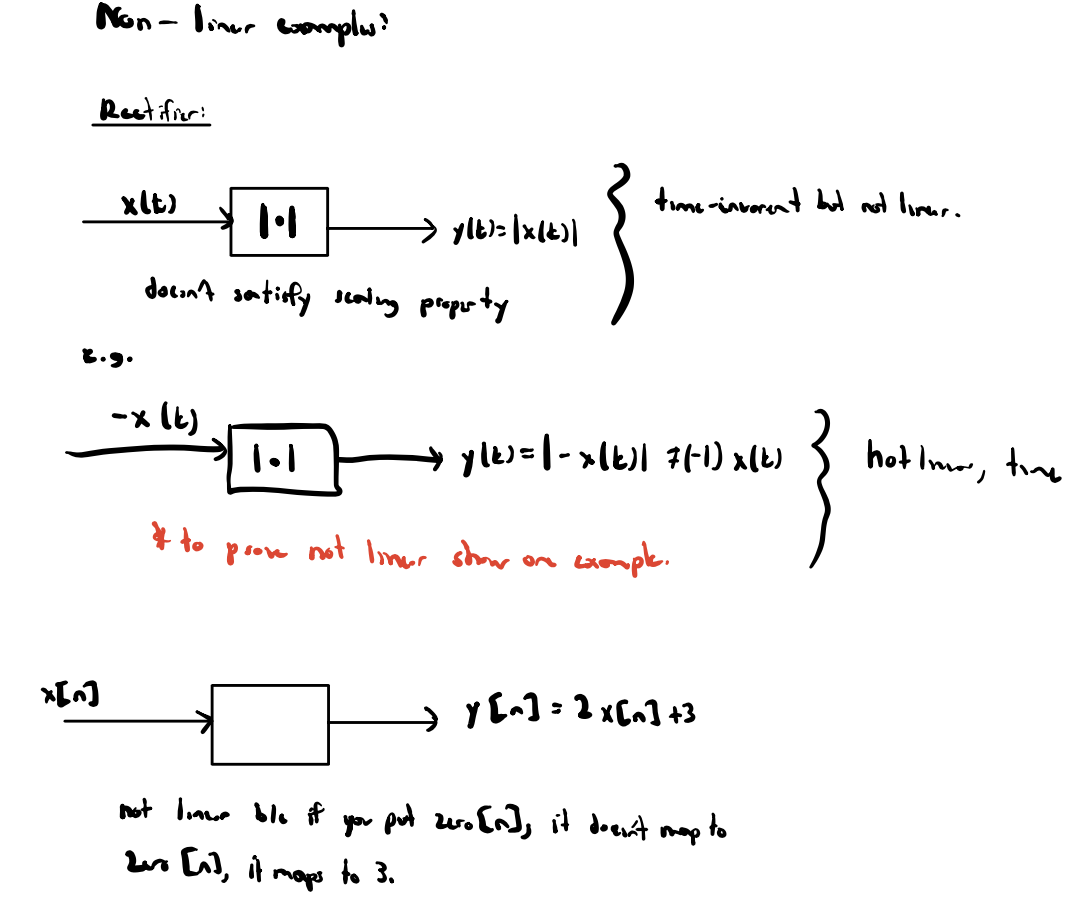 Non-linear examples:
Rectifier:
x(t)
|•|
y(t)=|x(t)|
time-invarent but not linear.
doesn't satisfy scaling property
e.g.
-x(t)
|•|
y(t)=|-x(t)| ≠(-1)x(t)
not linear, time
* to prove not linear show an example.
x[n]
y[n]=2x[n]+3
not linear b/c if you put zero[n], it doesn't map to
zero[n], it maps to 3.